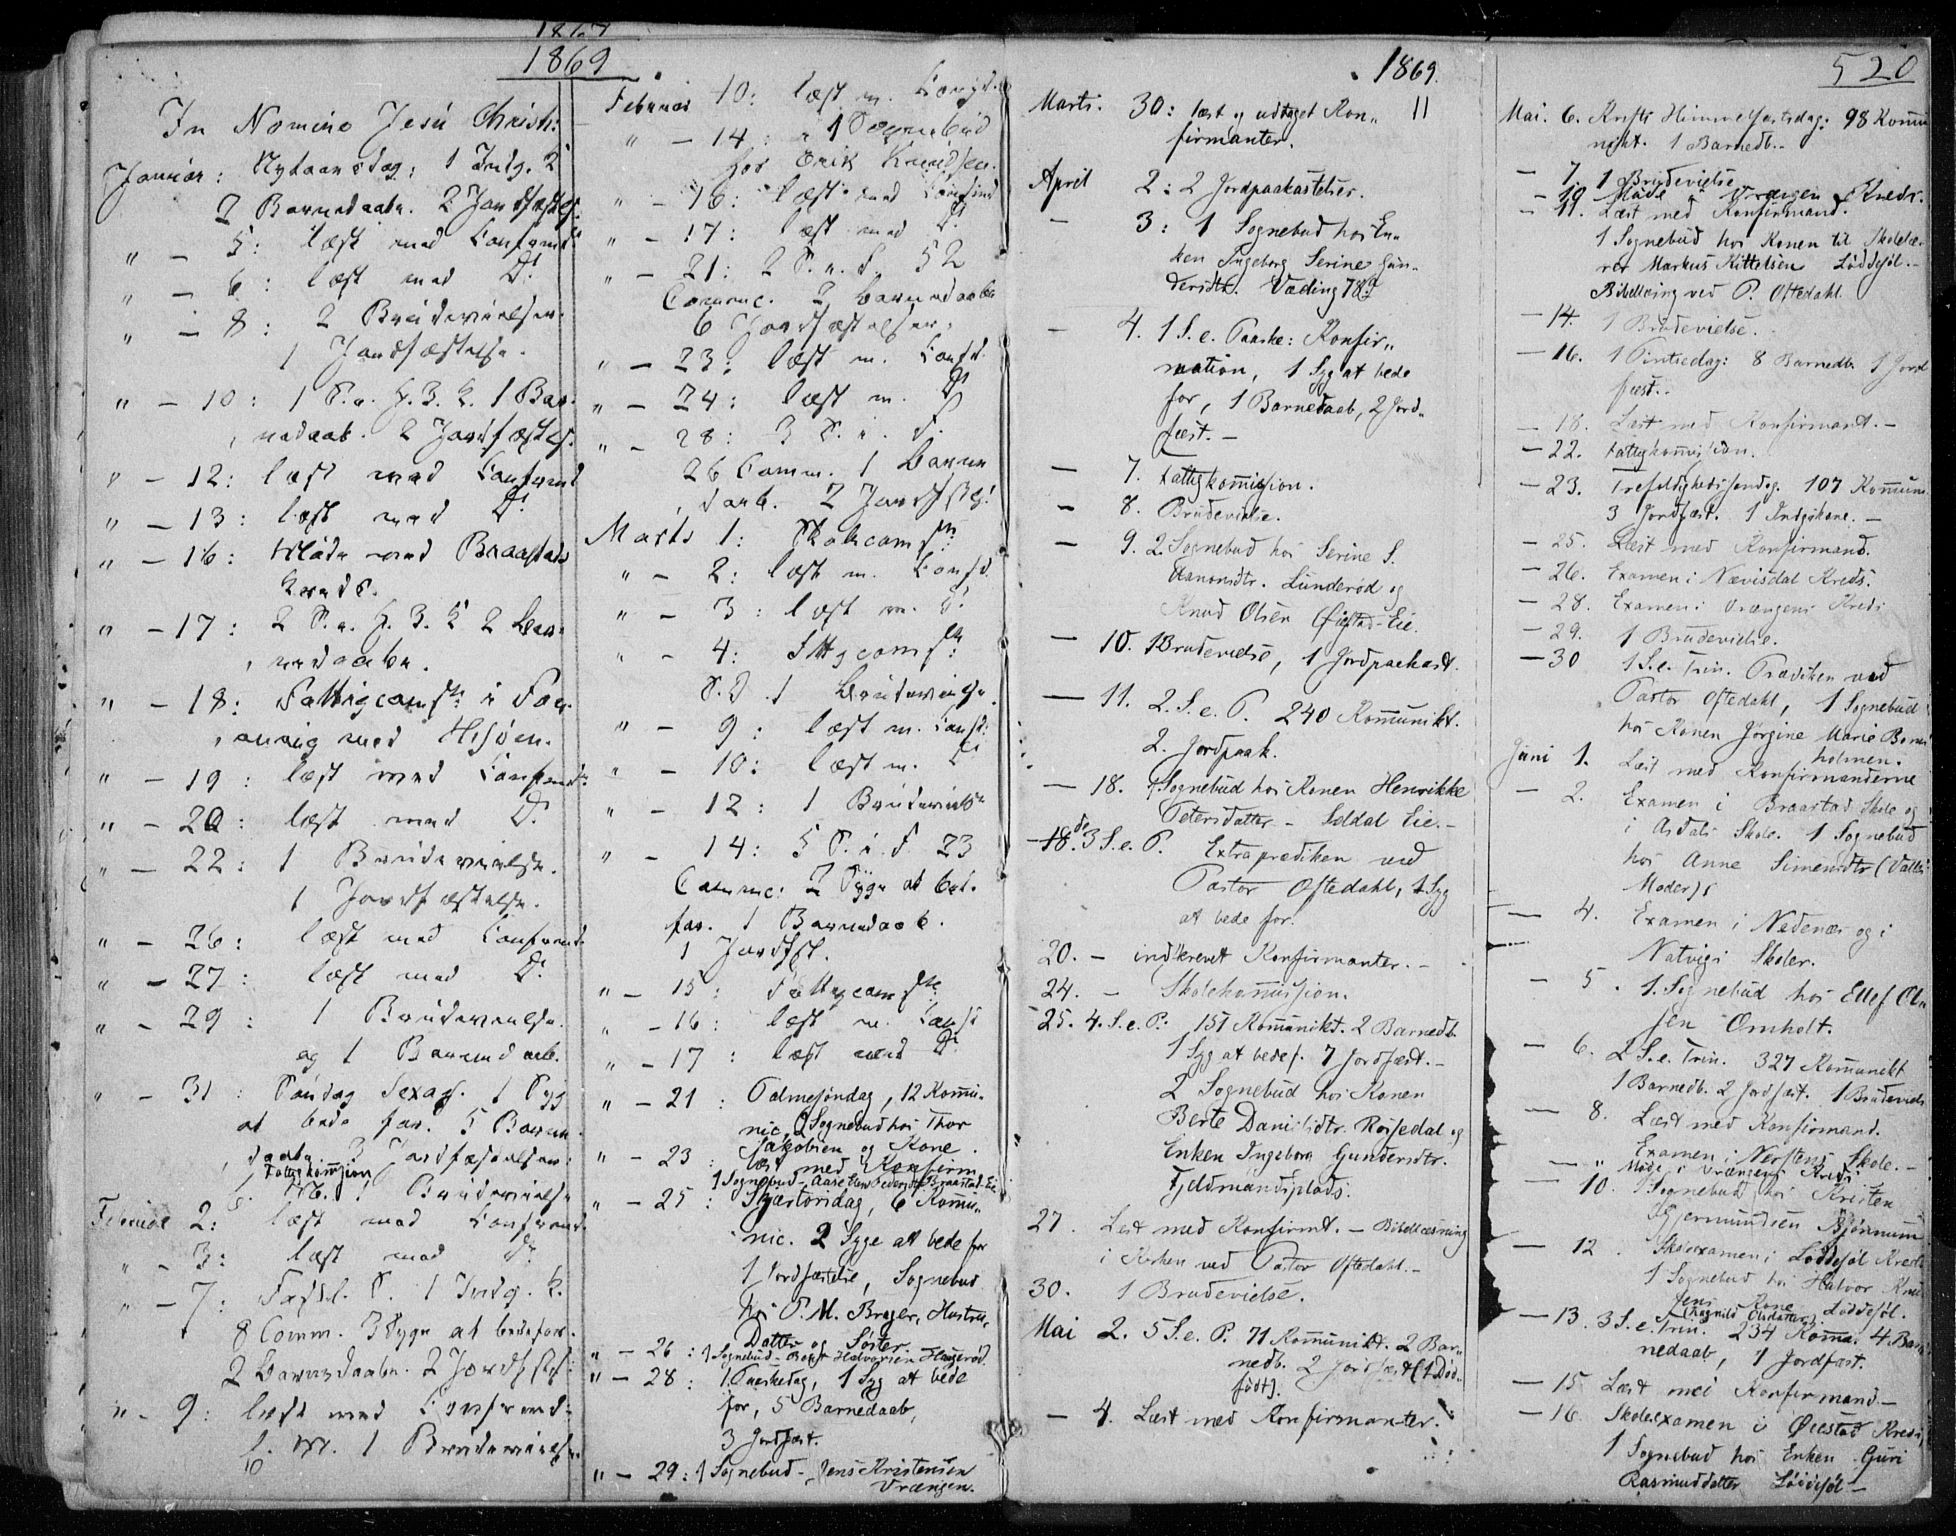 1869
In Nomine Jesu Christi
Januar: Nytaarsdag: 1 Indg. K
2 Barnedaabe. 2 Jordfæstels.
" - 5: læst med Confirmd
" - 6: læst med Do
" - 8: 2 Brudevielser.
1 Jordfæstelse.
" - 10: 1 S. e. H. 3. K. 1 Bar-
nedaab. 2 Jordfæstels.
" - 12: læst med Confirmd
" - 13: læst med Do
" - 16: Møde med Braastads
Kreds.
" - 17: 2 S. e. H. 3. K 2 Bar-
nedaabe.
" - 18: Fattigcomsn i
med Hisøen.
" - 19: læst med Confirmd
" - 20: læst med Do
" - 22: 1 Brudevielse.
1 Jordfæstelse.
" - 26: læst med Confirmd
" - 27: læst med Do
" - 29: 1 Brudevielse.
og 1 Barnedaab.
" - 31: Søndag Sexag. 1 Syg
at bede for. 5 Barne-
daabe 3 Jordfæstelser.
Fattigkommission
1 Brudevielse
Februar 2: læst med Confirmd
" - 3: læst med Do
" - 7: Fastel. S. 1 Indg. K.
8 Comm. 3 Syge at bede for.
2 Barnedaabe. 2 Jordfæst:
" - 9: læst med Confirmd
10 1 Brudevielse
Februar 10: læst m. Confd.
" - 14: 1 Sognebud
hos Erik Knudsen.
" - 16: læst med Confirmd
" - 17: læst med Do
" - 21: 2 S. i. F. 52
Commc. 2 Barnedaabe
6 Jordfæstelser.
" - 23: læst m. Confd.
" - 24: læst m. Do
" - 28: 3 S. i. F.
26 Comm. 1 Barne
daab. 2 Jordfst:
Marts 1: Skolecomsn
" - 2: læst m. Confd
" - 3: læst m. Do
" - 4: Fttgcomsn
S. D. 1 Brudevielse
" - 9: læst m. Confd:
" - 10: læst m. Do
" - 12: 1 Brudevielse
" - 14: 5 S. i. F 23
Commc: 2 Syge at bed.
for. 1 Barnedaab.
1 Jordfst.
" - 15: Fattigcomsn
" - 16: læst m. Confd
" - 17: læst med Do
" - 21: Palmesøndag, 12 Komu-
nic. 2 Sognebud hos Thor
Jakobsen og Kone.
" - 23: læst med Konfirm
1 Sognebud - Aase Pedersdtr Braastad-Eie
" - 25: Skjærtorsdag, 6 Komu-
nic. 2 Syge at bede for
1 Jordfæstelse, Sognebud
hos P. M. Brager, Hustru,
Datter og Søster.
" - 26: 1 Sognebud - Halvorsen Haugerød
" - 28: 1. Paaskedag, 1 Syg at bede
for, 5 Barnedaab,
3 Jordfæst.
" - 29: 1 Sognebud - Jens Kristensen
Vrængen.
1869.
Marts. 30: læst og udtaget Kon- 11
firmanter.
April 2: 2 Jordpaakastelser.
- 3: 1 Sognebud hos En-
ken Ingeborg Serine Gun-
dersdtr. Væding
- 4. 1 S. e. Paaske: Konfir-
mation, 1 Syg at bede
for, 1 Barnedaab, 2 Jord-
fæst. -
- 7. Fattigkommission.
- 8. Brudevielse.
- 9. 2 Sognebud hos Serine S.
Aanonsdtr. Lunderød og
Knud Olsen Øiestad-Eie.
- 10. 1 Brudevielse, 1 Jordpaakast.
- 11. 2. S. e. P. 240 Komunikt.
2. Jordpaak.
- 18. 1 Sognebud hos Konen Henrikke
Petersdatter - Seldal Eie. -
- 18de. 3 S. e. P. Extraprædiken ved
Pastor Oftedahl, 1 Syg
at bede for.
20. - indskrevet Konfirmanter. -
24. - Skolekommission.
25. 4. S. e. P. 151 Komunikt. 2 Barnedb.
1 Syg at bede f. 7 Jordfæst. -
2 Sognebud hos Konen
Berte Danielsdtr. Rossedal og
Enken Ingeborg Gundersdtr.
Fjeldmandsplads.
27. Læst med Konfirmt. - Bibellæsning
i Kirken ved Pastor Oftedahl. -
30. 1 Brudevielse.
Mai 2. 5 S. e. P. 71 Komunikt. 2 Bar-
nedb. 2 Jordfæst (1 Død-
født).
- 4. Læst med Konfirmanter.
520
Mai. 6. Kristi Himmelfartsdag: 98 Komu
nikt. 1 Barnedb. -
- 7. 1 Brudevielse
- 10 Møde i Vrængen Kreds.
- 11. Læst med Konfirmand.
1 Sognebud hos Konen til Skolelæ-
rer Markus Kittelsen Løddesøl. -
Bibellæsning ved P. Oftedahl.
- 14. 1 Brudevielse.
- 16. 1 Pintsedag: 8 Barnedb. 1 Jord
fæst. -
- 18. Læst med Konfirmant. -
- 22. Fattigkommission.
- 23. Trefoldighedssøndag. 107 Komun
3 Jordfæst. 1 Indgskone. -
- 25. Læst med Konfirmand.
- 26. Examen i Nævisdal Kreds.
- 28. Examen i Vrængens Kreds
- 29. 1 Brudevielse.
- 30 1 S. e. Trin. Prædiken ved
Pastor Oftedahl, 1 Sognebud
hos Konen Jørgine Marie
holmen.
Juni 1. Læst med Konfirmanderne
- 2. Examen i Braastad Skole og
i Asdals Skole. 1 Sognebud
hos Anne Simensdtr
Moder).
- 4. Examen i Nedenæs og i
Natvigs Skoler.
- 5. 1. Sognebud hos Ellef Ol-
sen Omholt.
- 6. 2 S. e. Trin. 327 Komunikt
1 Barnedb. 2 Jordfæst. 1 Brudeviels
- 8. Læst med Konfirmand.
- " Examen i Nerstens Skole. -
Møde i Vrængens Kreds
- 10. 1 Sognebud hos Kristen
Gjermundsen Bjørnum
- 12. Skolexamen i Løddesøl Kreds
1 Sognebud hos Halvor Knu
sens Kone Løddesøl.
(Ragnild Olsdatter)
- 13. 3 S. e. Trin. 234 Komu. 4 Bar
nedaab, 1 Jordfæst.
- 15 Læst med Konfirmand -
- 16. Skoleexamen i Øiestad Kreds,
1 Sognebud hos Enken Guri
Rasmusdatter Løddesøl -